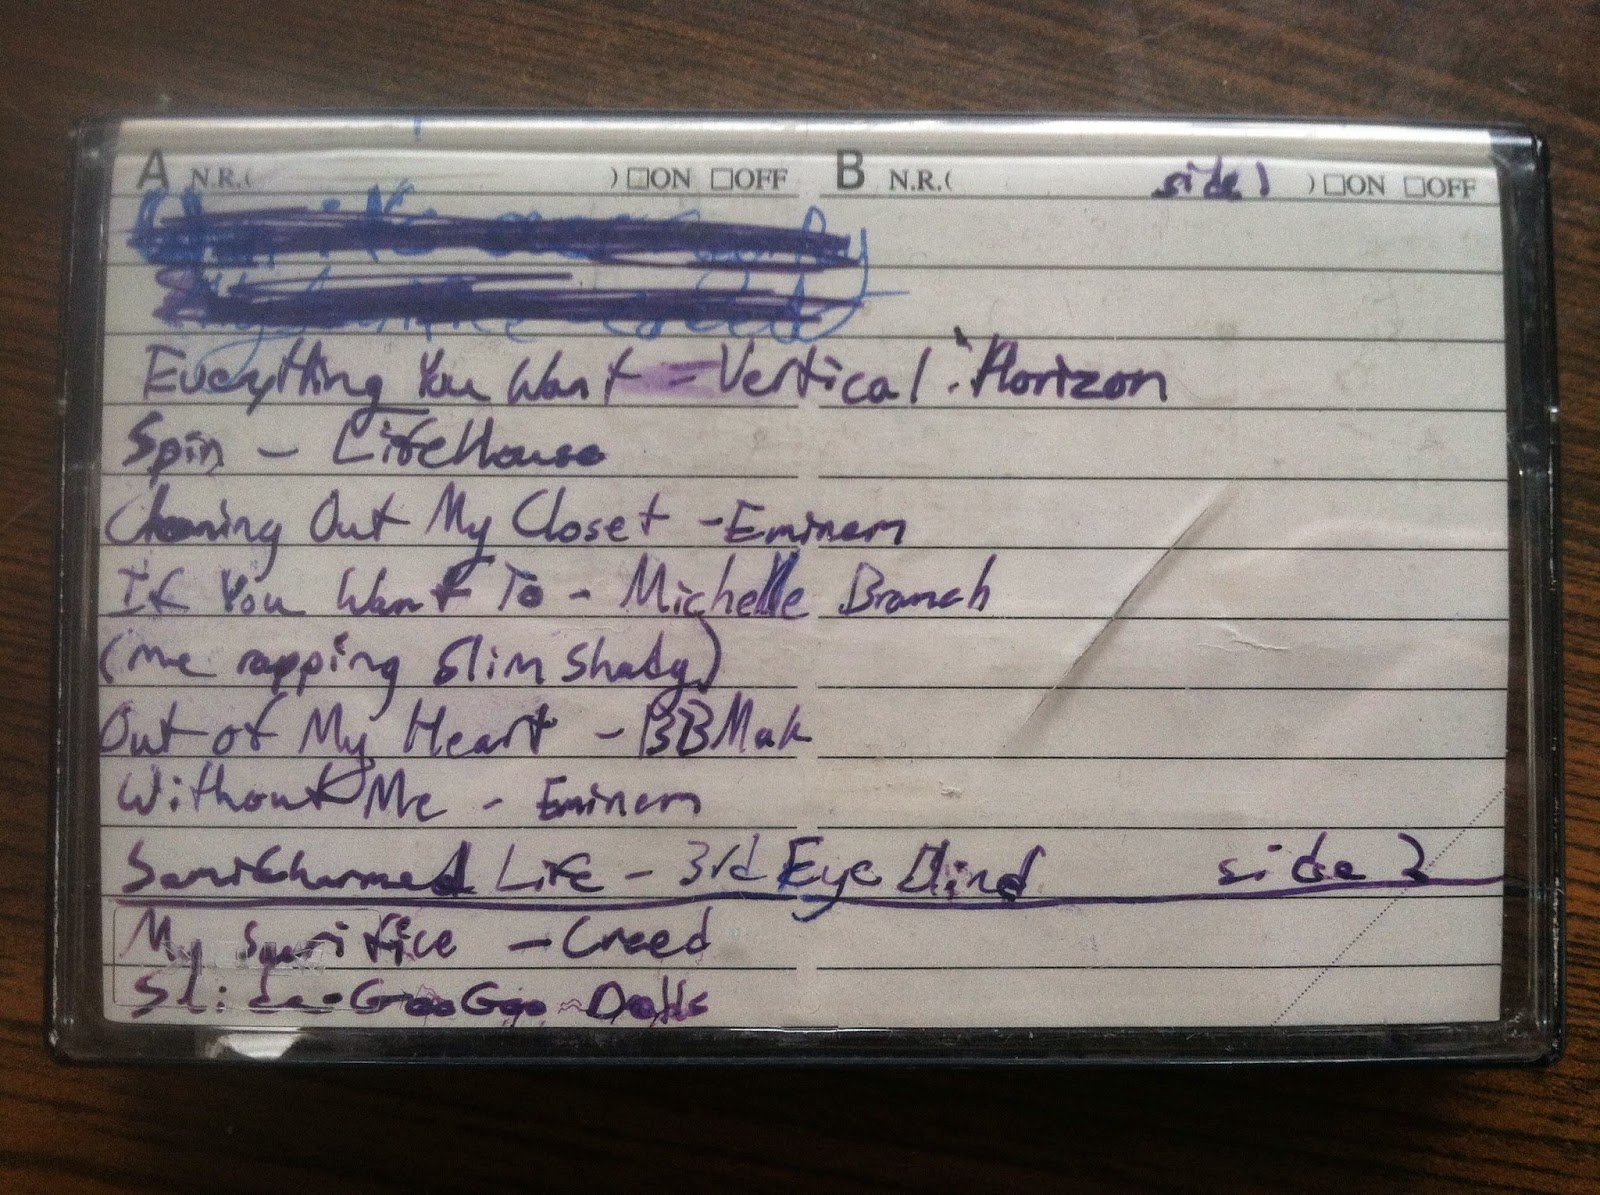 A N.R.( ) ☐ON ☐OFF B N.R.( side 1 ) ☐ON ☐OFF
Everything You Want = Vertical Horizon
Spin - LifeHouse
Cleaning Out My Closet - Eminem
If You Want To - Michelle Branch
(me rapping Slim Shady)
Out of My Heart - BBMak
Without Me - Eminem
SemiCharmed Life - 3rd Eye Blind side 2
My Sacrifice - Creed
Slide - Goo Goo Dolls